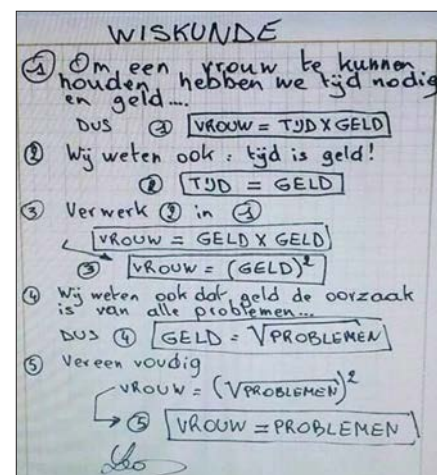 WISKUNDE
① Om een vrouw te kunnen
houden hebben we tijd nodig
en geld....
DUS ① VROUW = TIJD X GELD
② Wij weten ook : tijd is geld!
② TIJD = GELD
③ Verwerk ② in ①
VROUW = GELD X GELD
③ VROUW = (GELD)²
④ Wij weten ook dat geld de oorzaak
is van alle problemen...
DUS ④ GELD = √PROBLEMEN
⑤ Vereen voudig
VROUW = (√PROBLEMEN)²
⑤ VROUW = PROBLEMEN